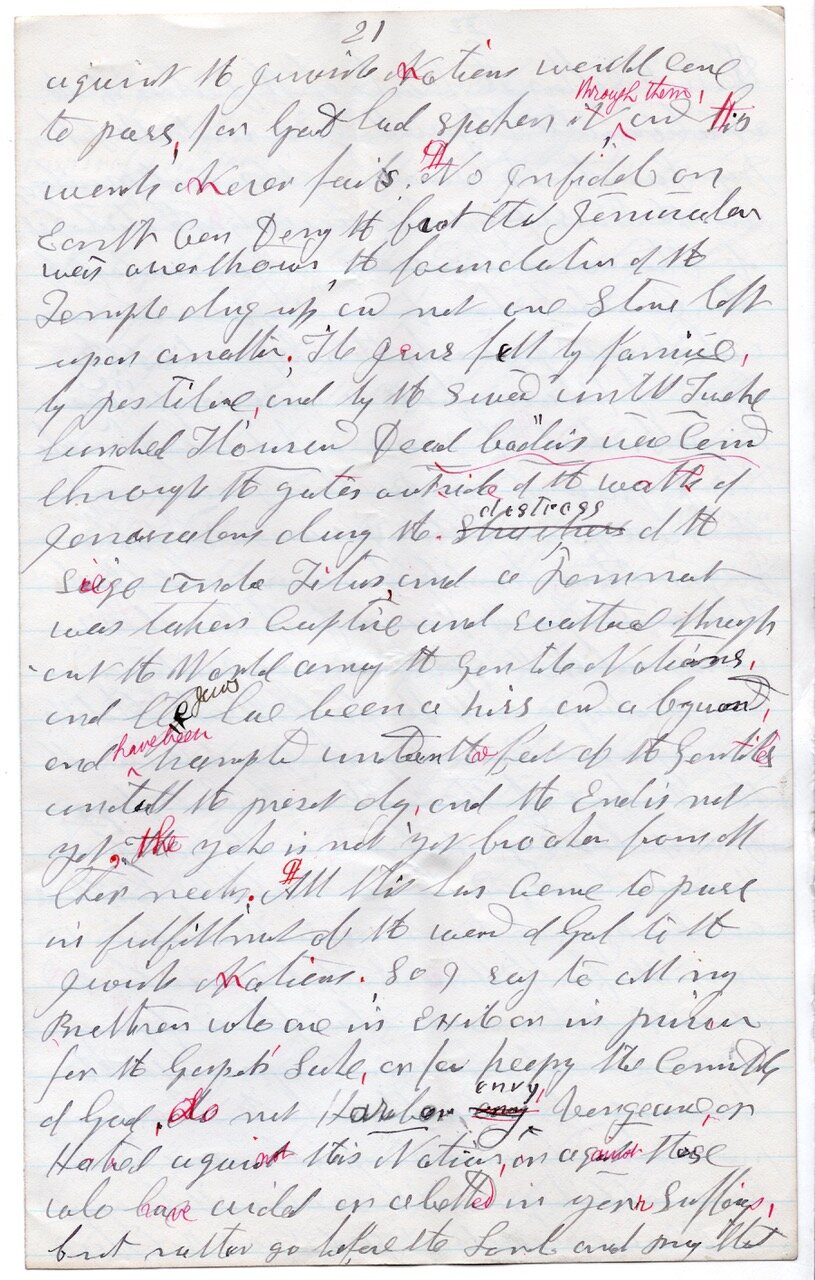 21
against the Jewish Nations would come
to pass, for God had spoken it, through them, and His
words Never fails. No Infidel on
Earth Can Deny the fact that Jerusalem
was overthrown, the foundation of the
Temple dug up and not one Stone left
upon another. The Jews fell by famine,
by pestilence, and by the sword until Twelve
hundred Thousand Dead bodies was Carried
through the gates outside of the walls of
Jerusalem during the distress of the
Siege under Titus, and a Remnant
was taken Captive and scattered through
out the World among the Gentile Nations,
and the Jews have been a hiss and a byword,
and have been trampled under the feet of the Gentiles
untill the present day, and the End is not
yet, the yoke is not yet broken from off
their neck. All this has Come to pass
in fulfillment of the word of God to the
Jewish Nations. So I say to all my
Brethren who are in Exile or in prison
for the Gospels Sake, or for keeping the Commands
of God, do not Harbor envy, Vengeance, or
Hatred against this Nation, or against those
who have aided or abetted in your Sufferings,
but rather go before the Lord and pray that